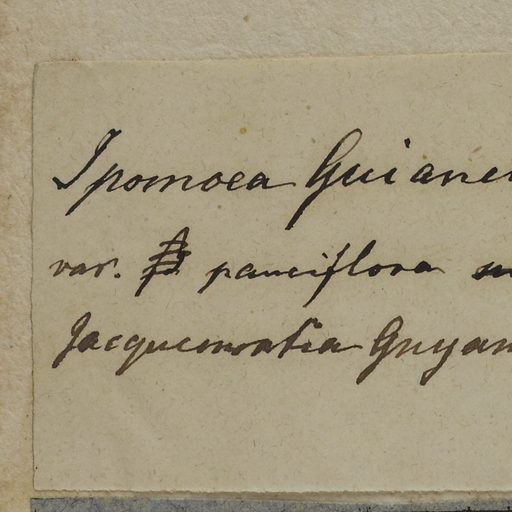 Ipomoea Guianen
var. β pauciflora m
Jacquemontia Guyan